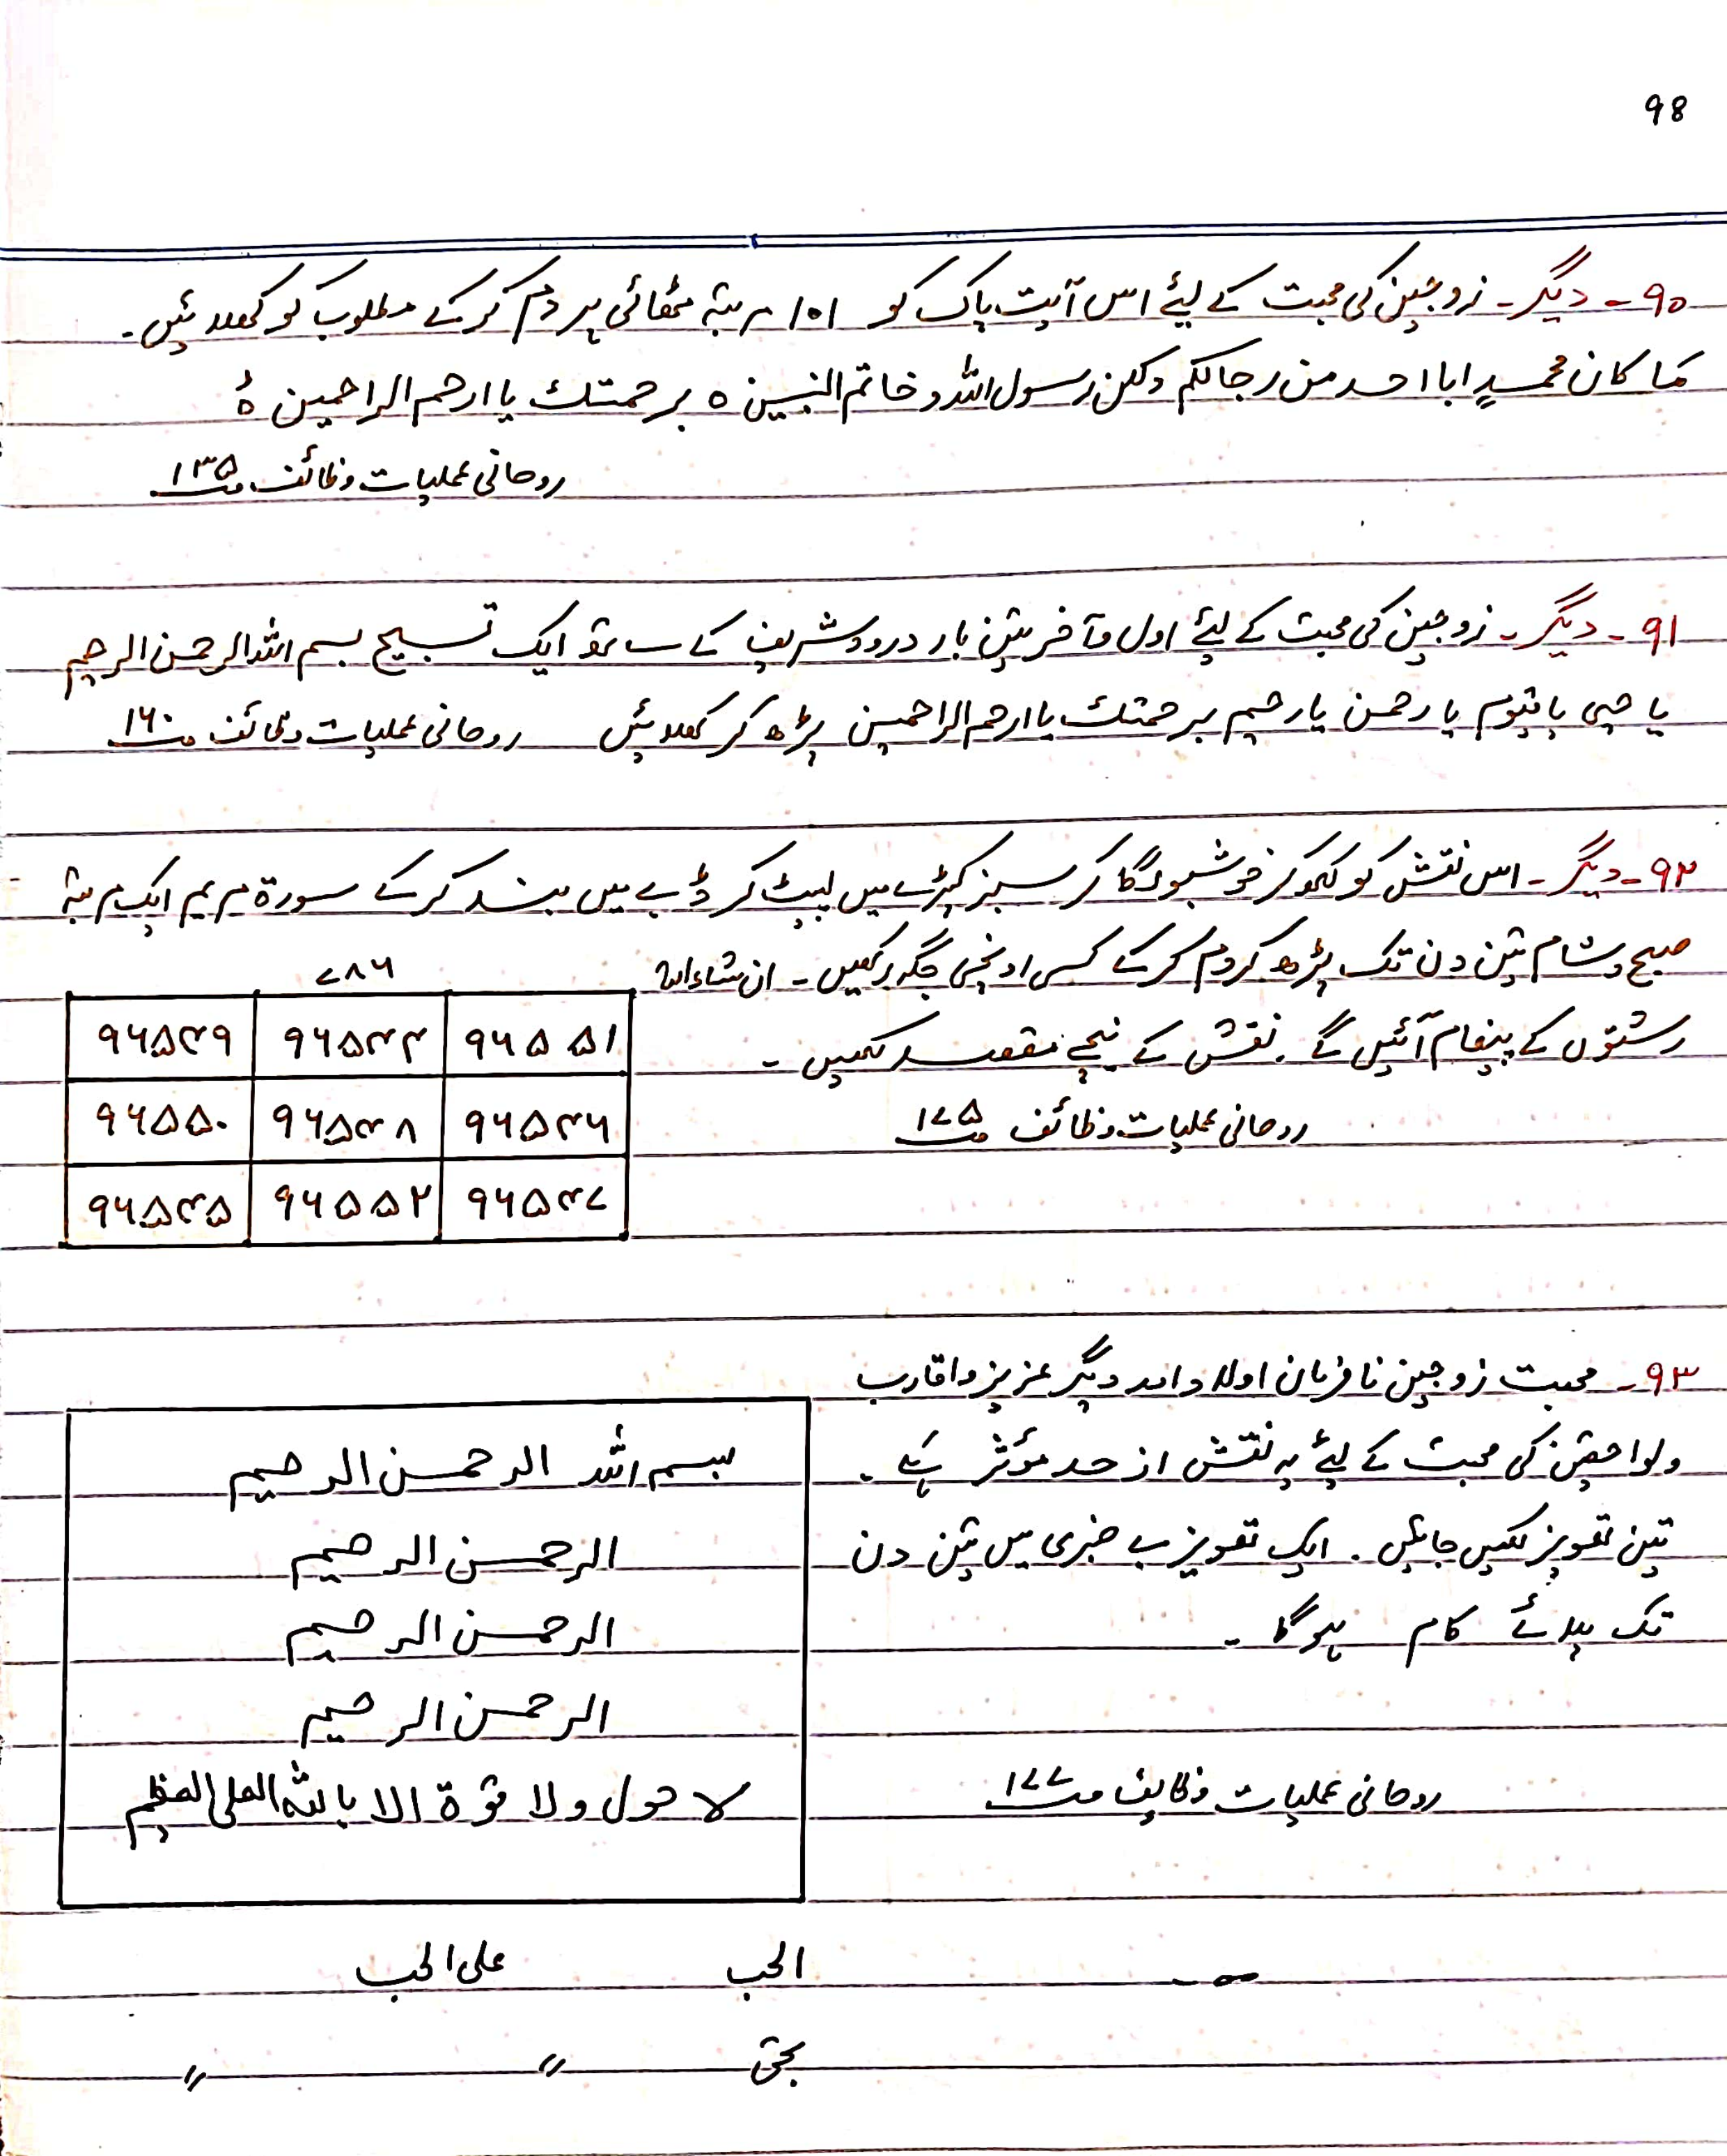 98
۹۰۔ دیگر۔ زوجین کی محبت کے لیئے اس آیت پاک کو ۱۰۱ مرتبہ مٹھائی پر دم کر کے مطلوب کو کھلائیں۔
ما کان محمدٍ ابا احد من رجالکم ولکن رسول اللہ و خاتم النبین ہ برحمتک یا ارحم الراحمین ہ
روحانی عملیات وظائف صـ ۱۳۵
۹۱۔ دیگر۔ زوجین کی محبت کے لیئے اول و آخر تین بار درود شریف کے ساتھ ایک تسبیح بسم اللہ الرحمن الرحیم
یا حیی یا قیوم یا رحمن یا رحیم برحمتک یا ارحم الراحمین پڑھ کر کھلائیں روحانی عملیات وظائف صـ ۱۶۰
۹۲۔ دیگر۔ اس نقش کو لکھ کر خوشبو لگا کر سبز کپڑے میں لپیٹ کر ڈبے میں بند کر کے سورۃ مریم ایک مرتبہ
صبح و شام تین دن تک پڑھ کر دم کر کے کسی اونچی جگہ رکھیں۔ ان شاء اللہ
رشتوں کے پیغام آئیں گے۔ نقش کے نیچے مقصد لکھیں۔
روحانی عملیات وظائف صـ ۱۷۵
۷۸۶
۹۶۵۵۱ ۹۶۵۴۴ ۹۶۵۴۹
۹۶۵۴۶ ۹۶۵۴۸ ۹۶۵۵۰
۹۶۵۴۷ ۹۶۵۵۲ ۹۶۵۴۵
۹۳۔ محبت زوجین نافرمان اولاد اور دیگر عزیز و اقارب
ولواحقین کی محبت کے لیئے یہ نقش از حد مؤثر ہے۔
تین تعویز لکھیں جائیں۔ ایک تعویز بے خبری میں تین دن
تک پلائے کام ہوگا۔
روحانی عملیات وظایف صـ ۱۷۷
بسم اللہ الرحمن الرحیم
الرحمن الرحیم
الرحمن الرحیم
الرحمن الرحیم
لا حول ولا قوة الا باللہ العلی العظیم
الحب علی الحب
بحق 〃 〃